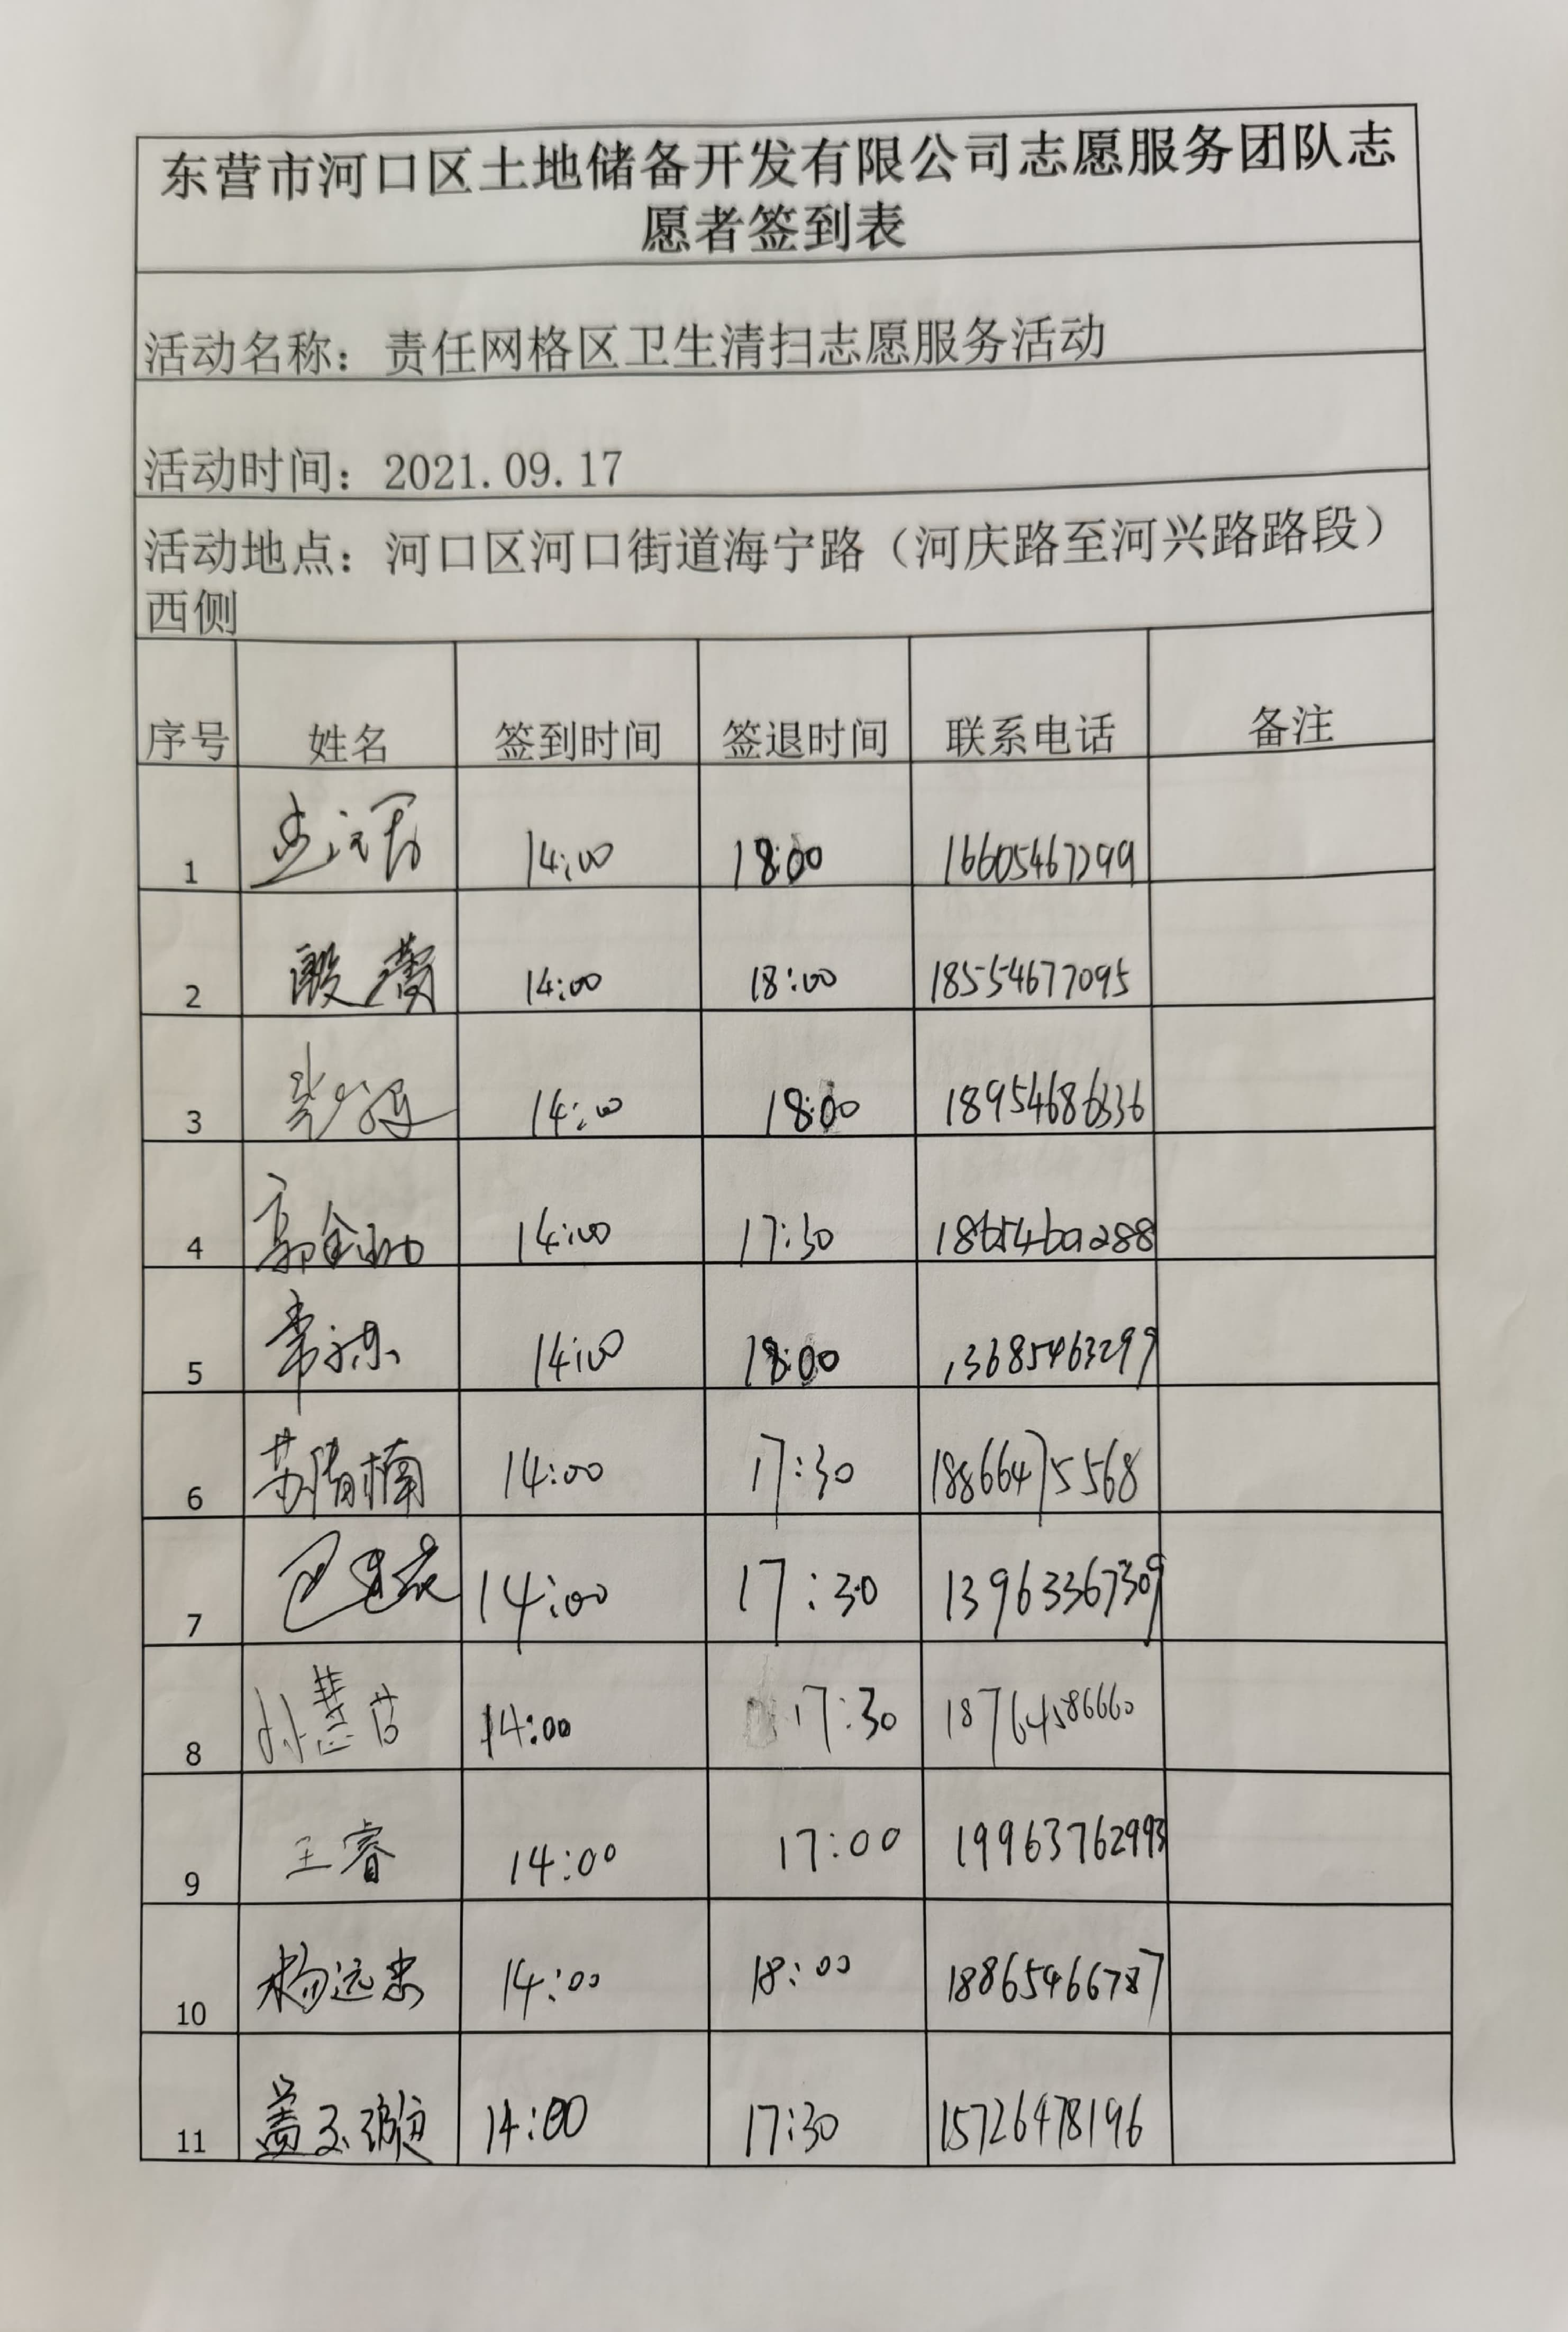 东营市河口区土地储备开发有限公司志愿服务团队志
愿者签到表
活动名称：责任网格区卫生清扫志愿服务活动
活动时间：2021.09.17
活动地点：河口区河口街道海宁路（河庆路至河兴路路段）
西侧
序号 姓名 签到时间 签退时间 联系电话 备注
1 14:00 18:00 16605467299
2 殷 14:00 18:00 18554677095
3 14:00 18:00 18954686336
4 14:00 17:30
5 14:00 18:00 13685463299
6 14:00 17:30 18866475568
7 14:00 17:30 13963367309
8 14:00 17:30 18764586660
9 王睿 14:00 17:00 19963762993
10 杨远忠 14:00 18:00 18865466787
11 盖玉璇 14:00 17:30 15726478196